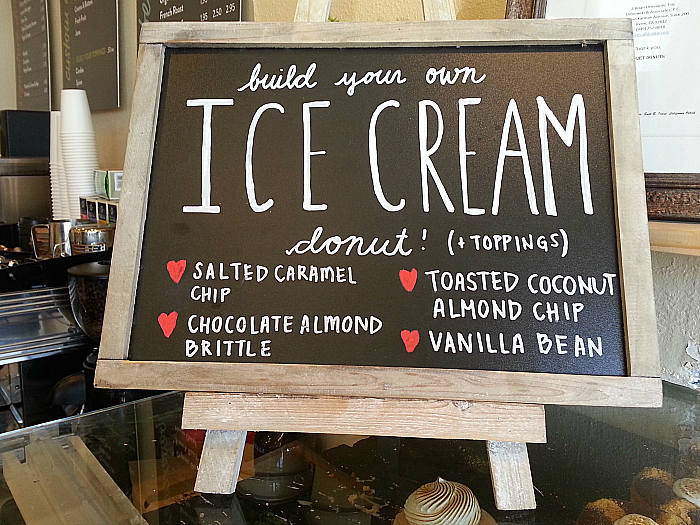 French Roast 1.95 2.50
build your own
ICE CREAM
donut! (+ TOPPINGS)
SALTED CARAMEL
CHIP
CHOCOLATE ALMOND
BRITTLE
TOASTED COCONUT
ALMOND CHIP
VANILLA BEAN